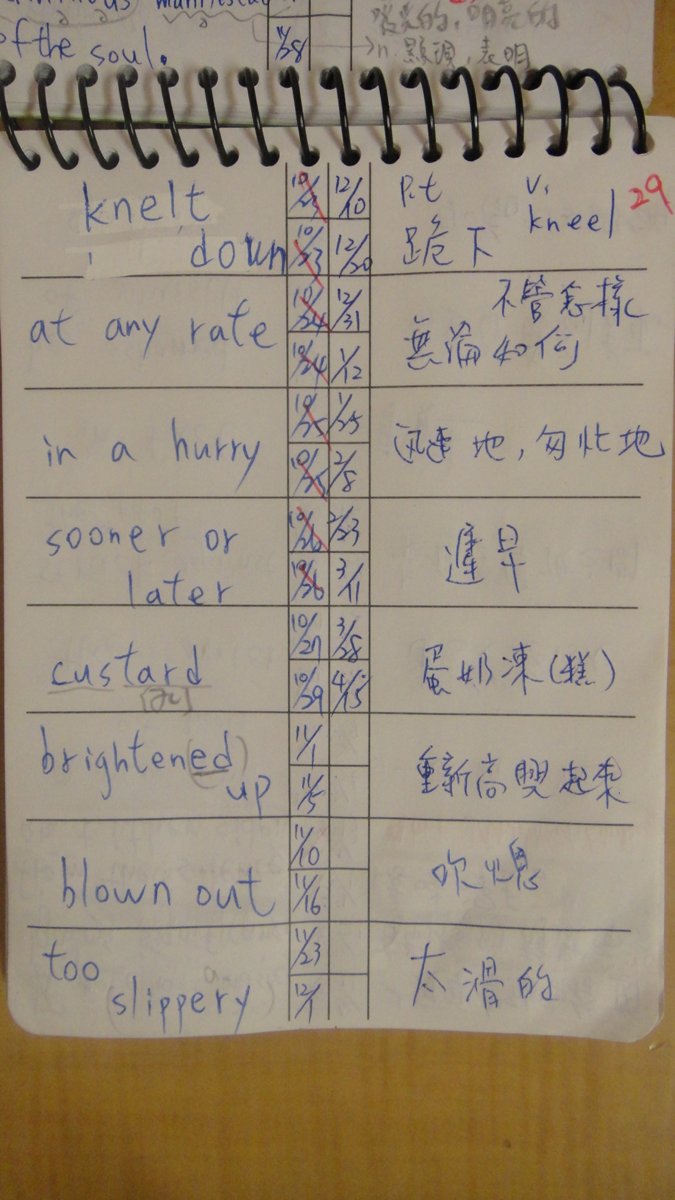 of the soul.
11/28
→n. 顯現,表明
knelt
down
10/23
12/10
10/23
12/20
p.t v.
kneel
跪下
29
at any rate
10/24
12/31
10/24
1/12
不管怎樣
無論如何
in a hurry
10/25
1/25
10/25
2/8
迅速地,匆忙地
sooner or
later
10/26
2/23
10/26
3/11
遲早
custard
10/27
3/28
10/29
4/15
蛋奶凍(糕)
brightened
up
11/1
11/5
重新高興起來
blown out
11/10
11/16
吹熄
too
slippery
11/23
12/1
太滑的